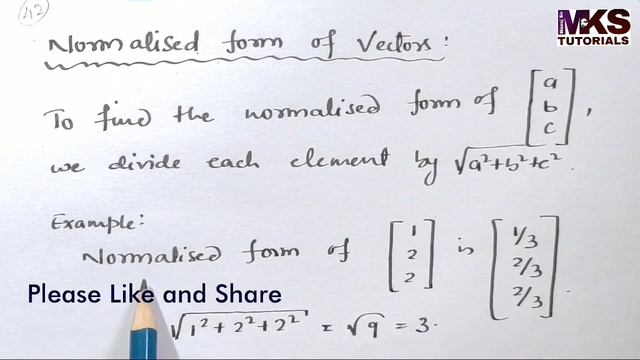 42
MKS
TUTORIALS
Normalised form of Vectors:
To find the normalised form of [a b c],
we divide each element by √a²+b²+c².
Example:
Normalised form of [1 2 2] is [1/3 2/3 2/3].
Please Like and Share
√1²+2²+2² = √9 = 3.